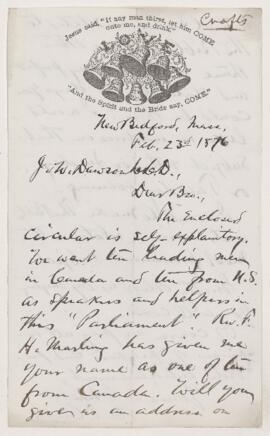 Crafts
Jesus said, "If any man thirst, let him COME
unto me, and drink"
LOVE
"And the Spirit and the Bride say, COME."
New Bedford, Mass.
Feb. 23rd 1876
J. W. Dawson LL.D.,
Dear Bro.,
The Enclosed
circular is self-explanitory.
We want ten leading men
in Canada and ten from U.S.
as speakers and helpers in
this "Parliament". Rev. F.
H. Marling has given me
your name as one of ten
from Canada. Will you
give us an address on